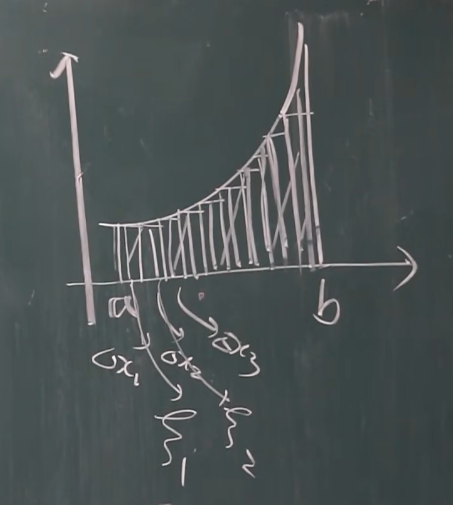 a b
Δx₁ Δx₂ Δx₃
h₁ h₂